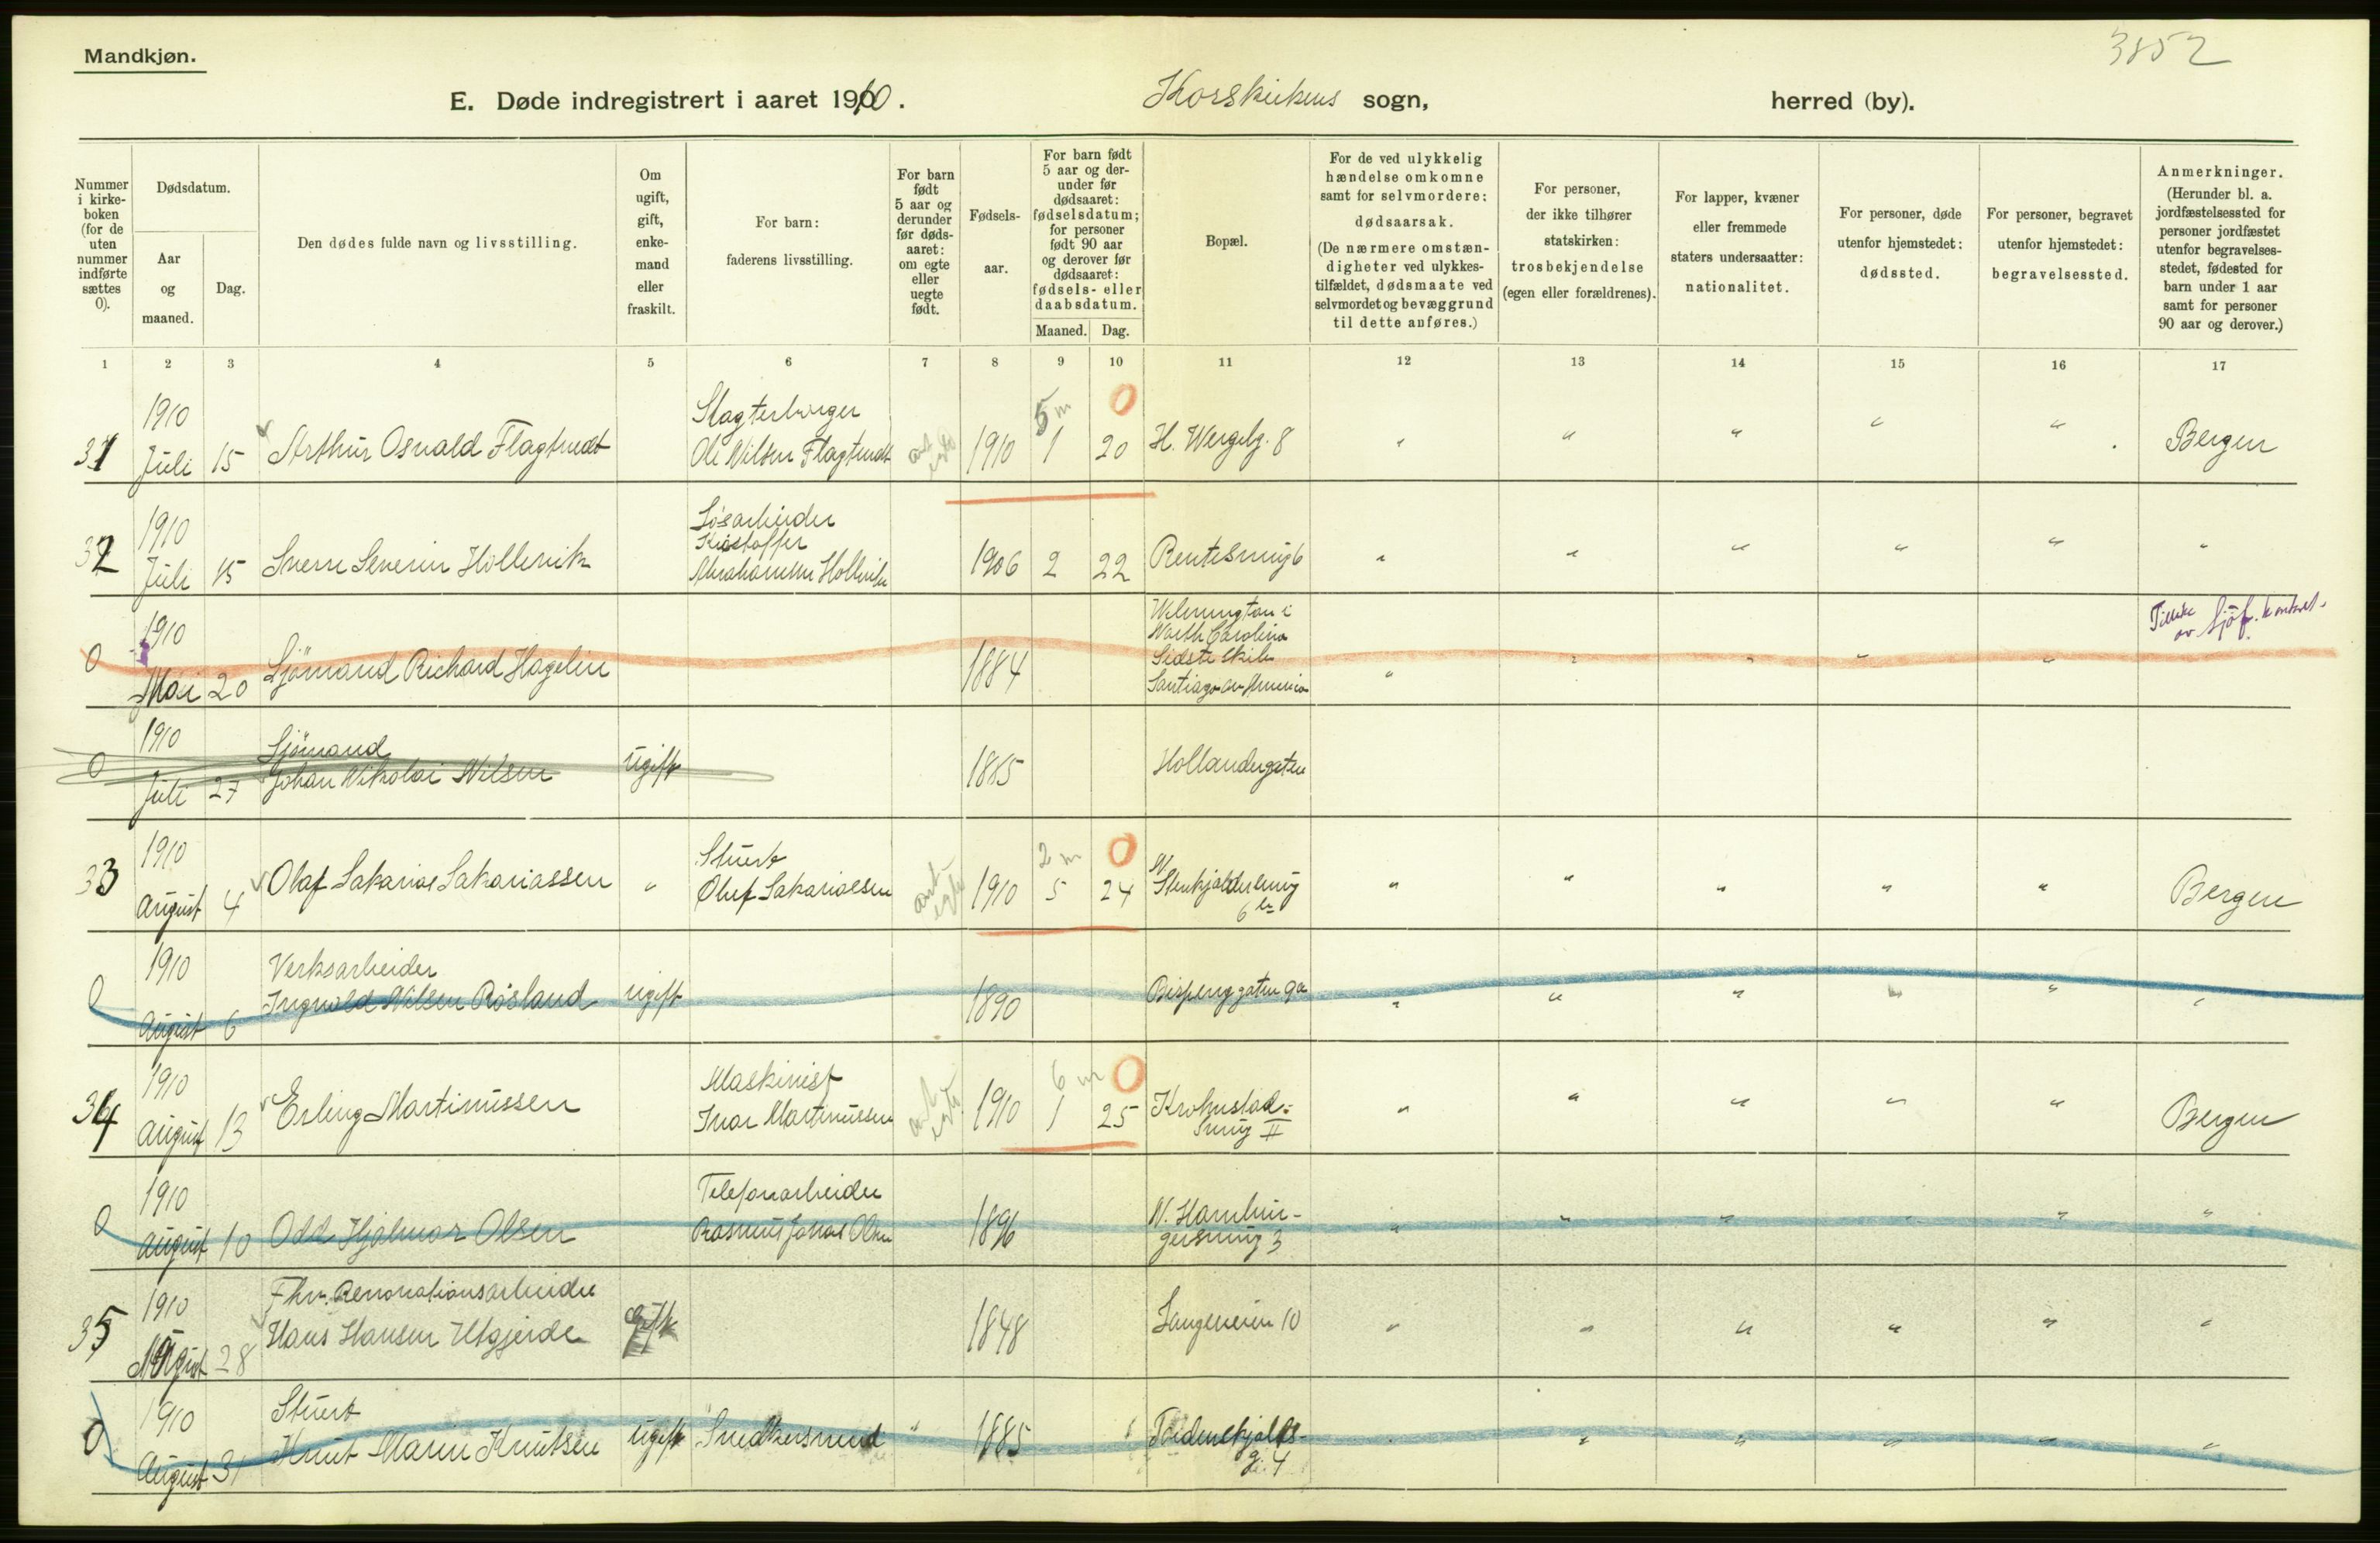 3852
Mandkjøn.
E. Døde indregistrert i aaret 1910. Korskirkens sogn, herred (by).
Nummer i kirkeboken (for de uten nummer indførte sættes 0).
Dødsdatum.
Aar og maaned.
Dag.
Den dødes fulde navn og livsstilling.
Om ugift, gift, enkemand eller fraskilt.
For barn: faderens livsstilling.
For barn født 5 aar og derunder før dødsaaret: om egte eller uegte født.
Fødselsaar.
For barn født 5 aar og derunder før dødsaaret: fødselsdatum; for personer født 90 aar og derover før dødsaaret: fødsels- eller daabsdatum.
Maaned. Dag.
Bopæl.
For de ved ulykkelig hændelse omkomne samt for selvmordere: dødsaarsak. (De nærmere omstændigheter ved ulykkestilfældet, dødsmaate ved selvmordet og bevæggrund til dette anføres.)
For personer, der ikke tilhører statskirken: trosbekjendelse (egen eller forældrenes).
For lapper, kvæner eller fremmede staters undersaatter: nationalitet.
For personer, døde utenfor hjemstedet: dødssted.
For personer, begravet utenfor hjemstedet: begravelsessted.
Anmerkninger. (Herunder bl. a. jordfæstelsessted for personer jordfæstet utenfor begravelsesstedet, fødested for barn under 1 aar samt for personer 90 aar og derover.)
1 2 3 4 5 6 7 8 9 10 11 12 13 14 15 16 17
1910 Slagterborger 5 m 0
31 Juli 15 Arthur Osvald Flagtvedt Ole Nilsen Flagtvedt ant. egte 1910 1 20 H. Wergelg. 8 " " " " " Bergen
1910 Løsarbeider
Kristoffer
32 Juli 15 Sverre Severin Hollevik Abrahamsen Hollevik 1906 2 22 Rentesmug 6 " " " " " "
1910 Wilmington i
North Carolina
0 Mai 20 Sjömand Richard Hagelin 1884 Sidste Skib
Santiago av Amerika " " " " "
av Sjöf. kontret.
1910 Sjömand
0 Juli 27 Johan Nikolai Nilsen Ugift 1885 Hollendergaten
1910 Stuert 2 m 0
33 August 4 Olaf Sakarias Sakariassen " Oluf Sakariassen ant. egte 1910 5 24 N. Stenkjeldersmug
6 b " " " " " Bergen
1910 Verksarbeider
0 August 6 Ingvald Nilsen Røsland ugift 1890 Bispenggaten 9a " " " " " "
1910 Maskinist 6 m 0
34 August 13 Erling Martinussen Ivar Martinussen ant. egte 1910 1 25 Krohnstad-
smug II " " " " " Bergen
1910 Telefonarbeider
0 August 10 Odd Hjalmar Olsen Rasmus Johan Olsen 1896 N. Hambur-
gersmug 3 " " " " " "
1910 Fhv. Renovationsarbeider
35 August 28 Hans Hansen Utgjerde gift 1848 Langeveien 10 " " " " " "
1910 Stuert
0 August 31 Knut Marin Knutsen ugift Snedkersvend " 1885 Tordenskjolds-
g. 4 " " " " "